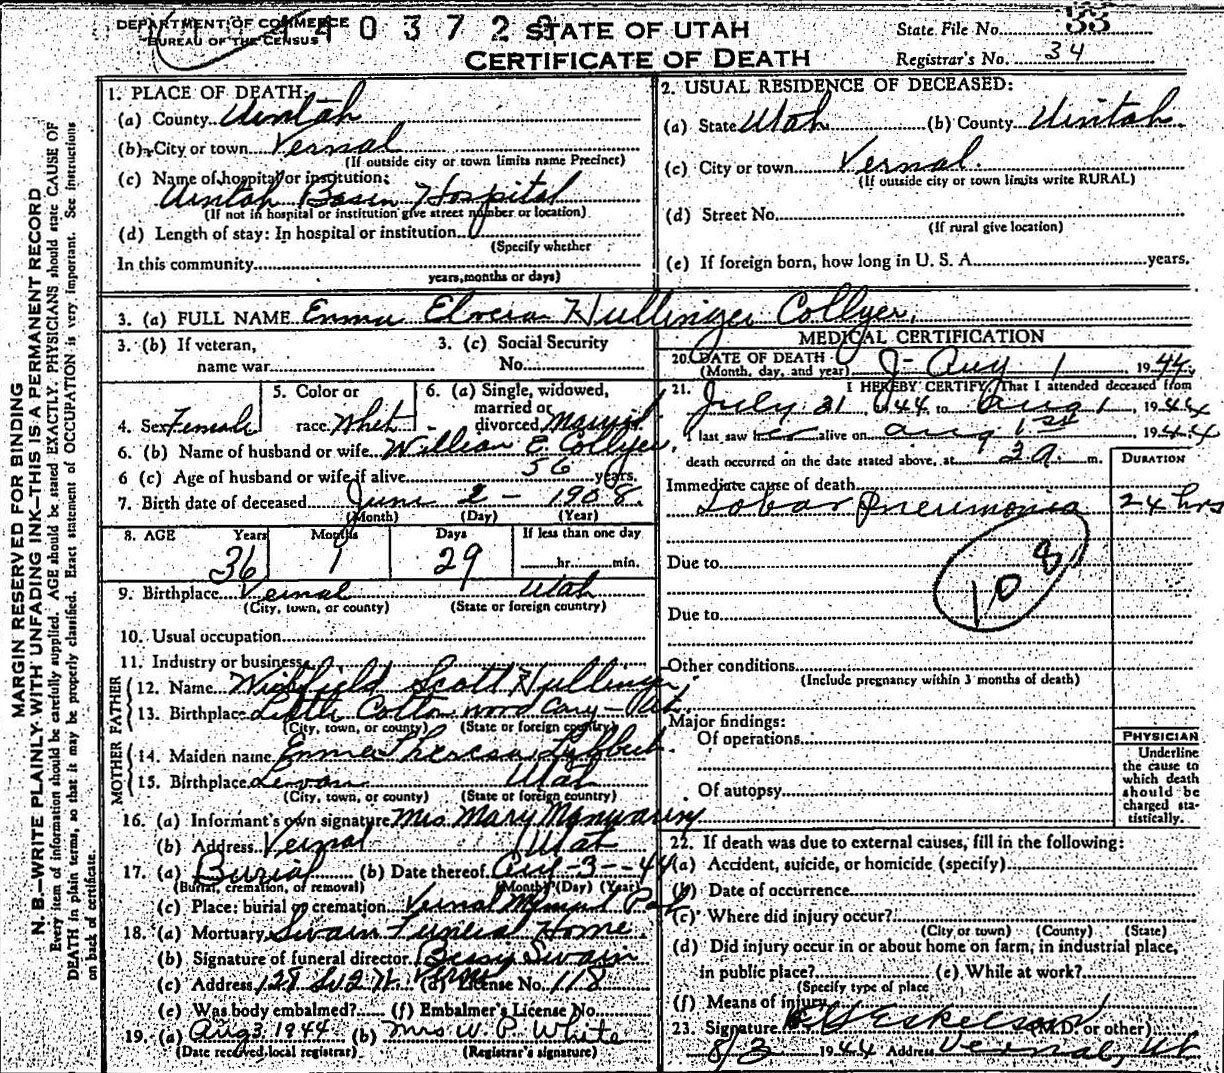 DEPARTMENT OF COMMERCE
BUREAU OF THE CENSUS
440372
STATE OF UTAH
CERTIFICATE OF DEATH
State File No. 33
Registrar's No. 34
MARGIN RESERVED FOR BINDING
N. B.—WRITE PLAINLY, WITH UNFADING INK—THIS IS A PERMANENT RECORD
Every item of information should be carefully supplied. AGE should be stated EXACTLY. PHYSICIANS should state CAUSE OF
DEATH in plain terms, so that it may be properly classified. Exact statement of OCCUPATION is very important. See instructions
on back of certificate.
1. PLACE OF DEATH:
(a) County Uintah
(b) City or town Vernal
(If outside city or town limits name Precinct)
(c) Name of hospital or institution:
Uintah Basin Hospital
(If not in hospital or institution give street number or location)
(d) Length of stay: In hospital or institution
(Specify whether
In this community
years, months or days)
2. USUAL RESIDENCE OF DECEASED:
(a) State Utah (b) County Uintah
(c) City or town Vernal.
(If outside city or town limits write RURAL)
(d) Street No.
(If rural give location)
(e) If foreign born, how long in U. S. A. years.
3. (a) FULL NAME Emma Elvera Hullinger Collyer.
3. (b) If veteran,
name war
3. (c) Social Security
No.
4. Sex Female
5. Color or
race Whet
6. (a) Single, widowed,
married or
divorced
6. (b) Name of husband or wife William E. Collyer
6 (c) Age of husband or wife if alive 56 years.
7. Birth date of deceased June 2 - 1908
(Month) (Day) (Year)
8. AGE Years Months Days If less than one day
36 1 29 hr. min.
9. Birthplace Vernal Utah
(City, town, or county) (State or foreign country)
10. Usual occupation
11. Industry or business
FATHER
12. Name Scott Hullinger
13. Birthplace Little Cotton wood
(City, town, or county) (State or foreign country)
MOTHER
14. Maiden name Emma Theresa
15. Birthplace Levan Utah
(City, town, or county) (State or foreign country)
16. (a) Informant's own signature Mrs. Mary Manwaring
(b) Address Vernal Utah
17. (a) Burial (b) Date thereof Aug-3-44
(Burial, cremation, or removal) (Month) (Day) (Year)
(c) Place: burial or cremation Vernal
18. (a) Mortuary Swain Funeral Home.
(b) Signature of funeral director Bessy Swain
(c) Address Vernal (d) License No. 118
(e) Was body embalmed? (f) Embalmer's License No.
19. (a) Aug 3, 1944 (b) Mrs W. P. White
(Date received, local registrar) (Registrar's signature)
MEDICAL CERTIFICATION
20. DATE OF DEATH Aug 1, 1944
(Month, day, and year)
21. I HEREBY CERTIFY, That I attended deceased from
July 31, 1944 to Aug 1, 1944
I last saw her alive on Aug 1st 1944
death occurred on the date stated above, at 3 a. m.
DURATION
Immediate cause of death
Lobar Pneumonia 24 hrs
108
Due to
Due to
Other conditions
(Include pregnancy within 3 months of death)
Major findings:
Of operations
Of autopsy
PHYSICIAN
Underline
the cause to
which death
should be
charged sta-
tistically.
22. If death was due to external causes, fill in the following:
(a) Accident, suicide, or homicide (specify)
(b) Date of occurrence
(c) Where did injury occur?
(City or town) (County) (State)
(d) Did injury occur in or about home on farm, in industrial place,
in public place? (e) While at work?
(Specify type of place
(f) Means of injury
23. Signature Eskelson (M.D. or other)
8/3 1944 Address Vernal, Ut